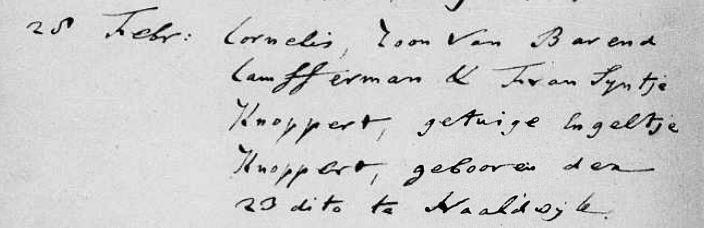 28 Febr: Cornelis, Zoon van Barend
Camfferman & Fran Syntje
Knoppert, getuige Engeltje
Knoppert, gebooren den
23 dito te Naaldwijk.